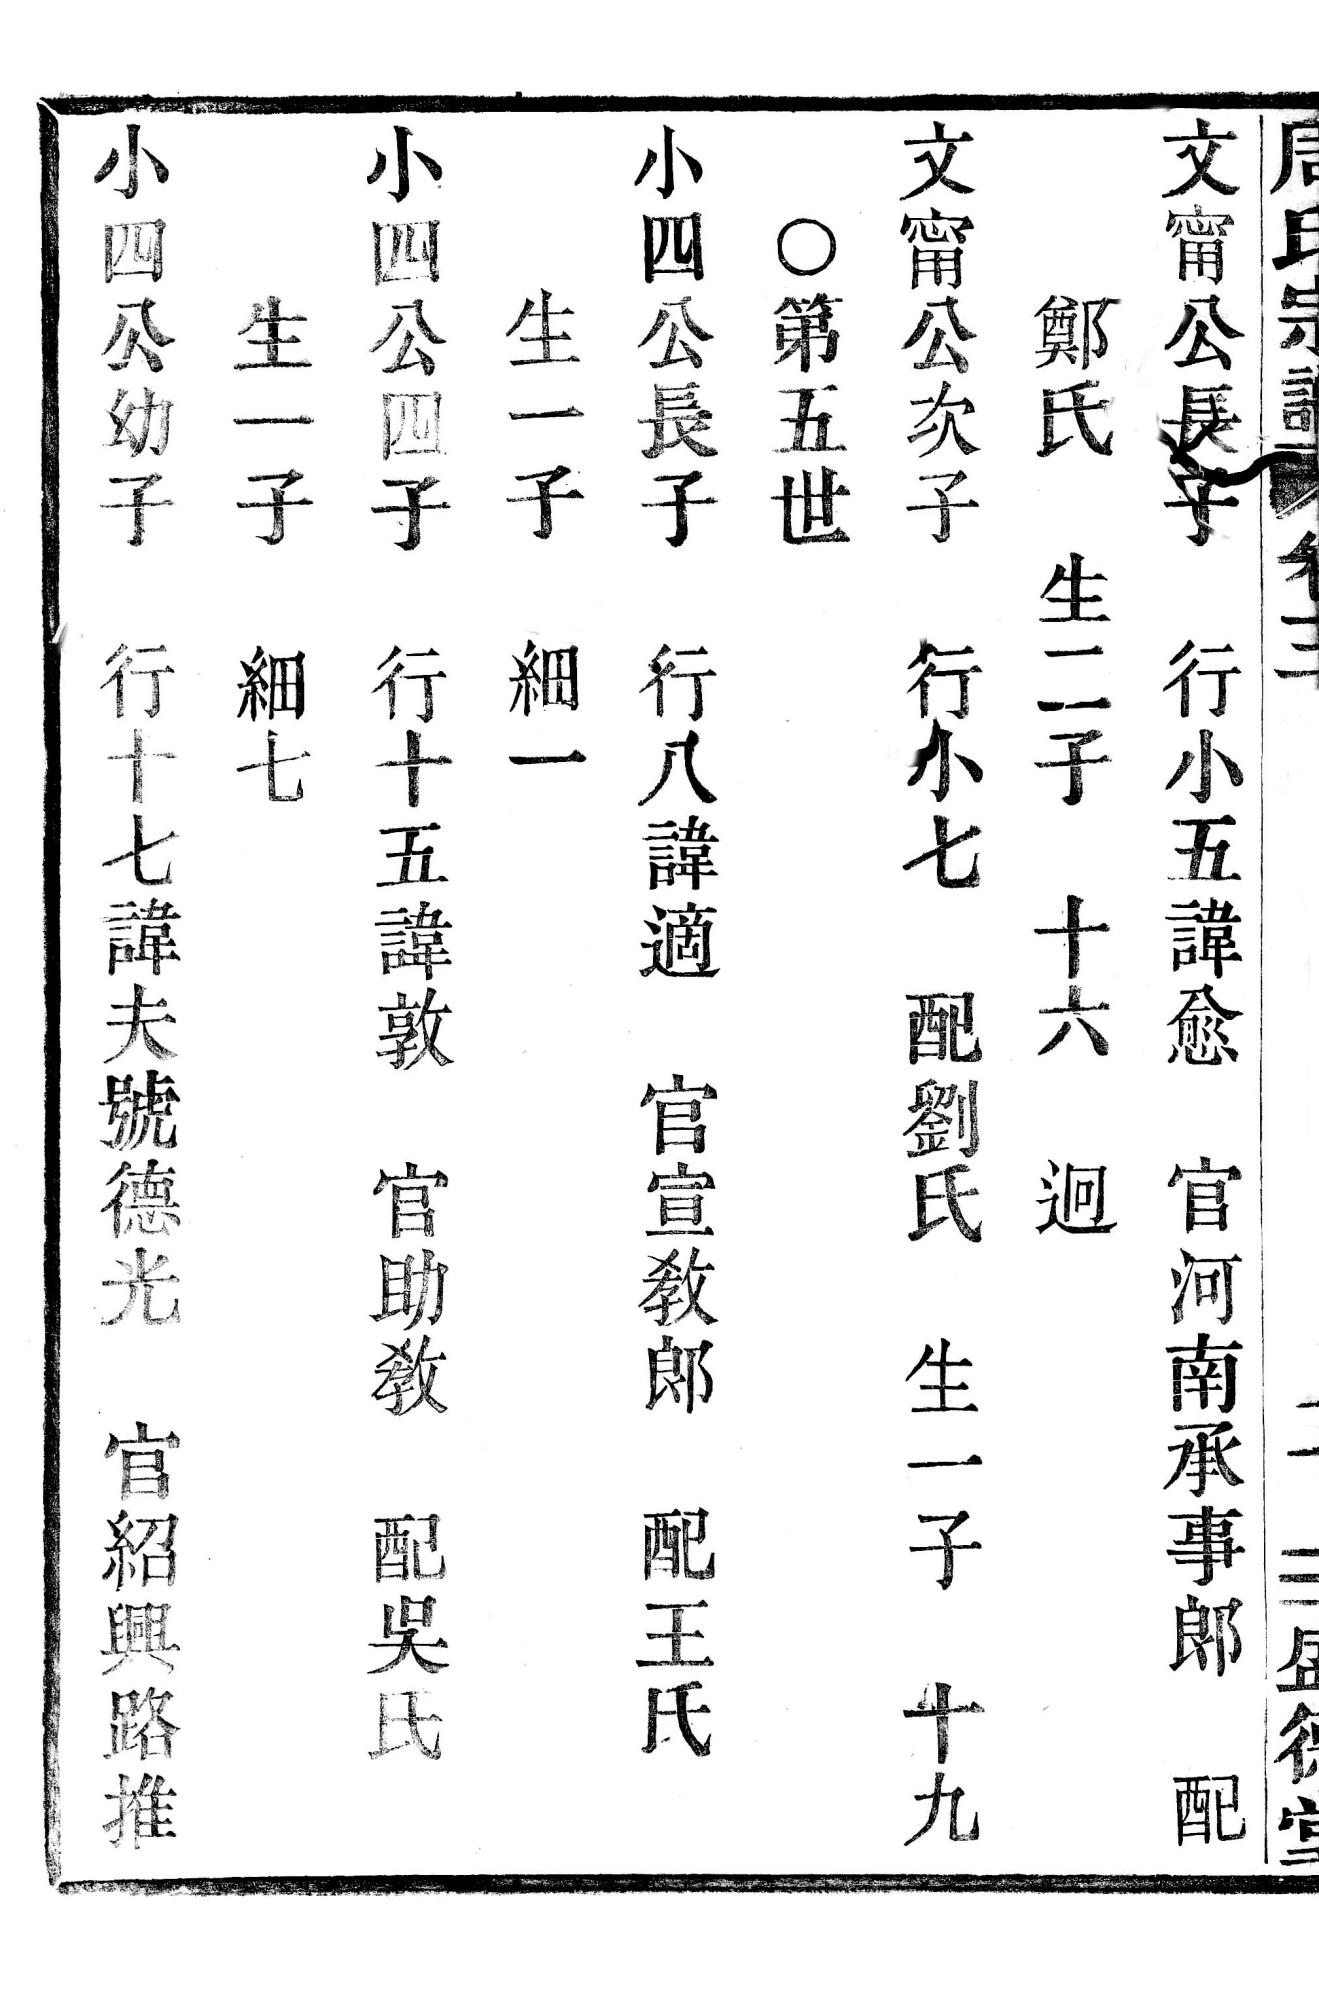 周氏宗譜 卷三 盛德堂
文甯公長子 行小五諱愈 官河南承事郎 配
鄭氏 生二子 十六 迥
文甯公次子 行小七 配劉氏 生一子 十九
○第五世
小四公長子 行八諱適 官宣教郎 配王氏
生一子 細一
小四公四子 行十五諱敦 官助教 配吳氏
生一子 細七
小四公幼子 行十七諱夫號德光 官紹興路推